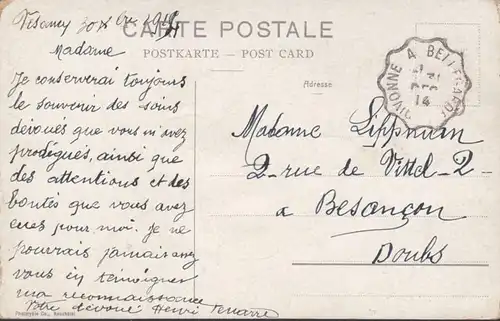 CARTE POSTALE
POSTKARTE — POST CARD
Adresse
DIVONNE A BELLEGARDE
31
DEC
14
Madame
Je conserverai toujours
le souvenir des soins
dévoués que vous m'avez
prodigués, ainsi que
des attentions et des
bontés que vous avez
eues pour moi. Je ne
pourrais jamais assez
vous en témoigner
ma reconnaissance
Votre dévoué Henri
Madame Lippmann
2 - rue de Vittel - 2 -
a Besançon
Doubs